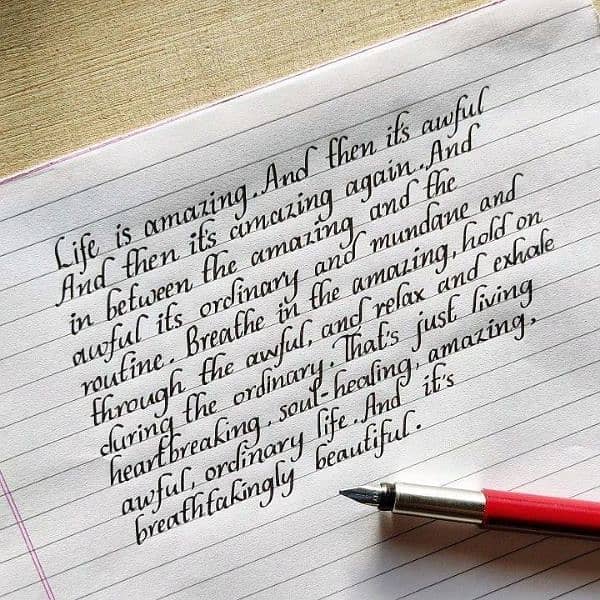 Life is amazing. And then it's awful
And then it's amazing again. And
in between the amazing and the
awful its ordinary and mundane and
routine. Breathe in the amazing, hold on
through the awful, and relax and exhale
during the ordinary. That's just living
heartbreaking, soul-healing, amazing,
awful, ordinary life. And it's
breathtakingly beautiful.